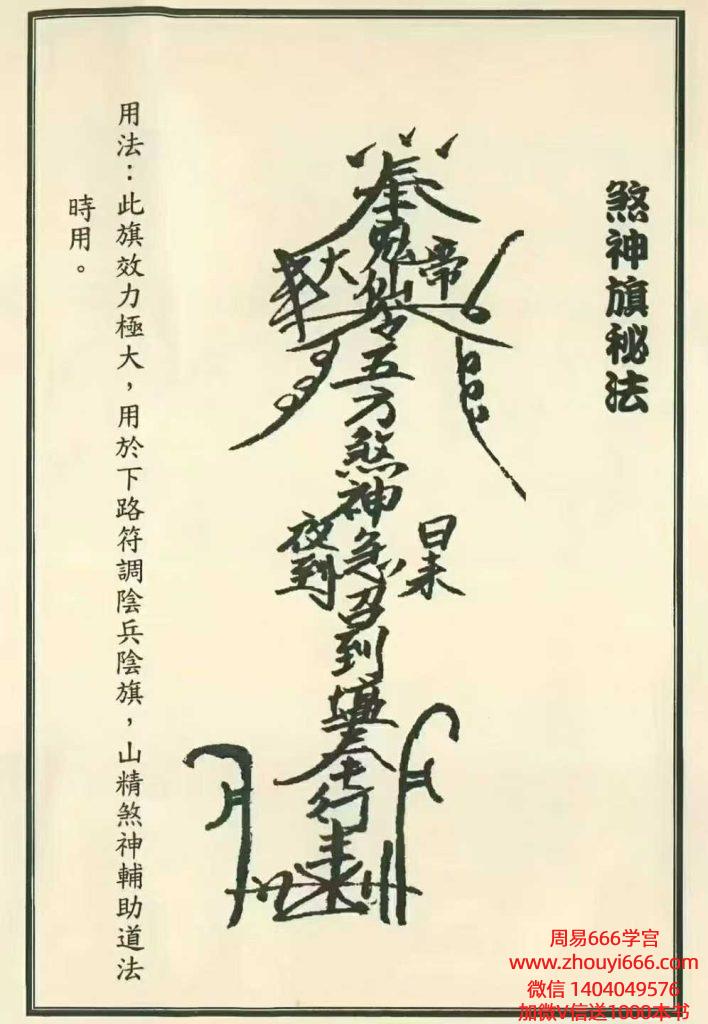 煞神旗秘法
奉
鬼仙令五方煞神急召到壇奉行
大帝
日来
夜到
用法：此旗效力極大，用於下路符調陰兵陰旗，山精煞神輔助道法
時用。
周易666学宫
www.zhouyi666.com
微信 1404049576
加微V信送1000本书